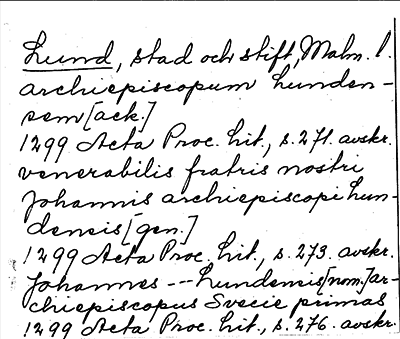 Lund, stad och stift, Malm. l.
archiepiscopum Lunden-
sem [ack.]
1299 Acta Proc. Lit., s. 271. avskr.
venerabilis fratris nostri
Johannis archiepiscopi Lun-
densis [gen.]
1299 Acta Proc. Lit., s. 273. avskr.
Johannes --- Lundensis [nom.] ar-
chiepiscopus Svecie primas
1299 Acta Proc. Lit., s. 276. avskr.